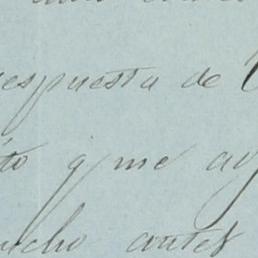 respuesta de
to q me ay
ucho antes